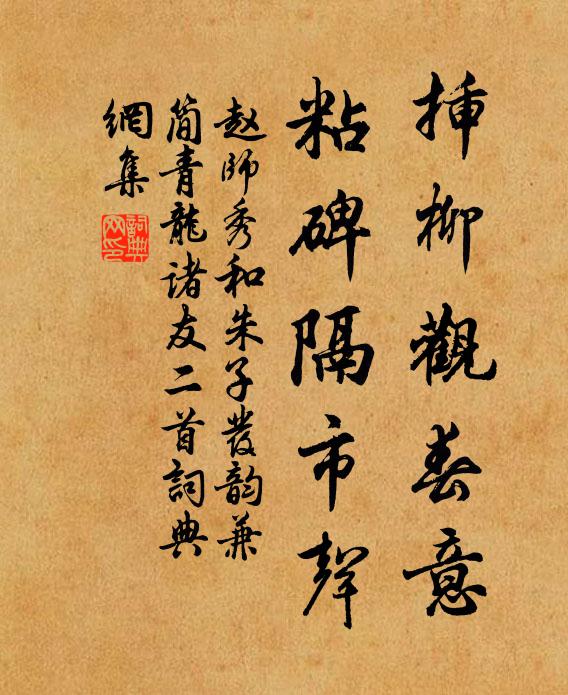 插柳觀春意
粘碑隔市聲
赵師秀和朱子發韵兼
简青龍诸友二首詞典
網集
詞典网印